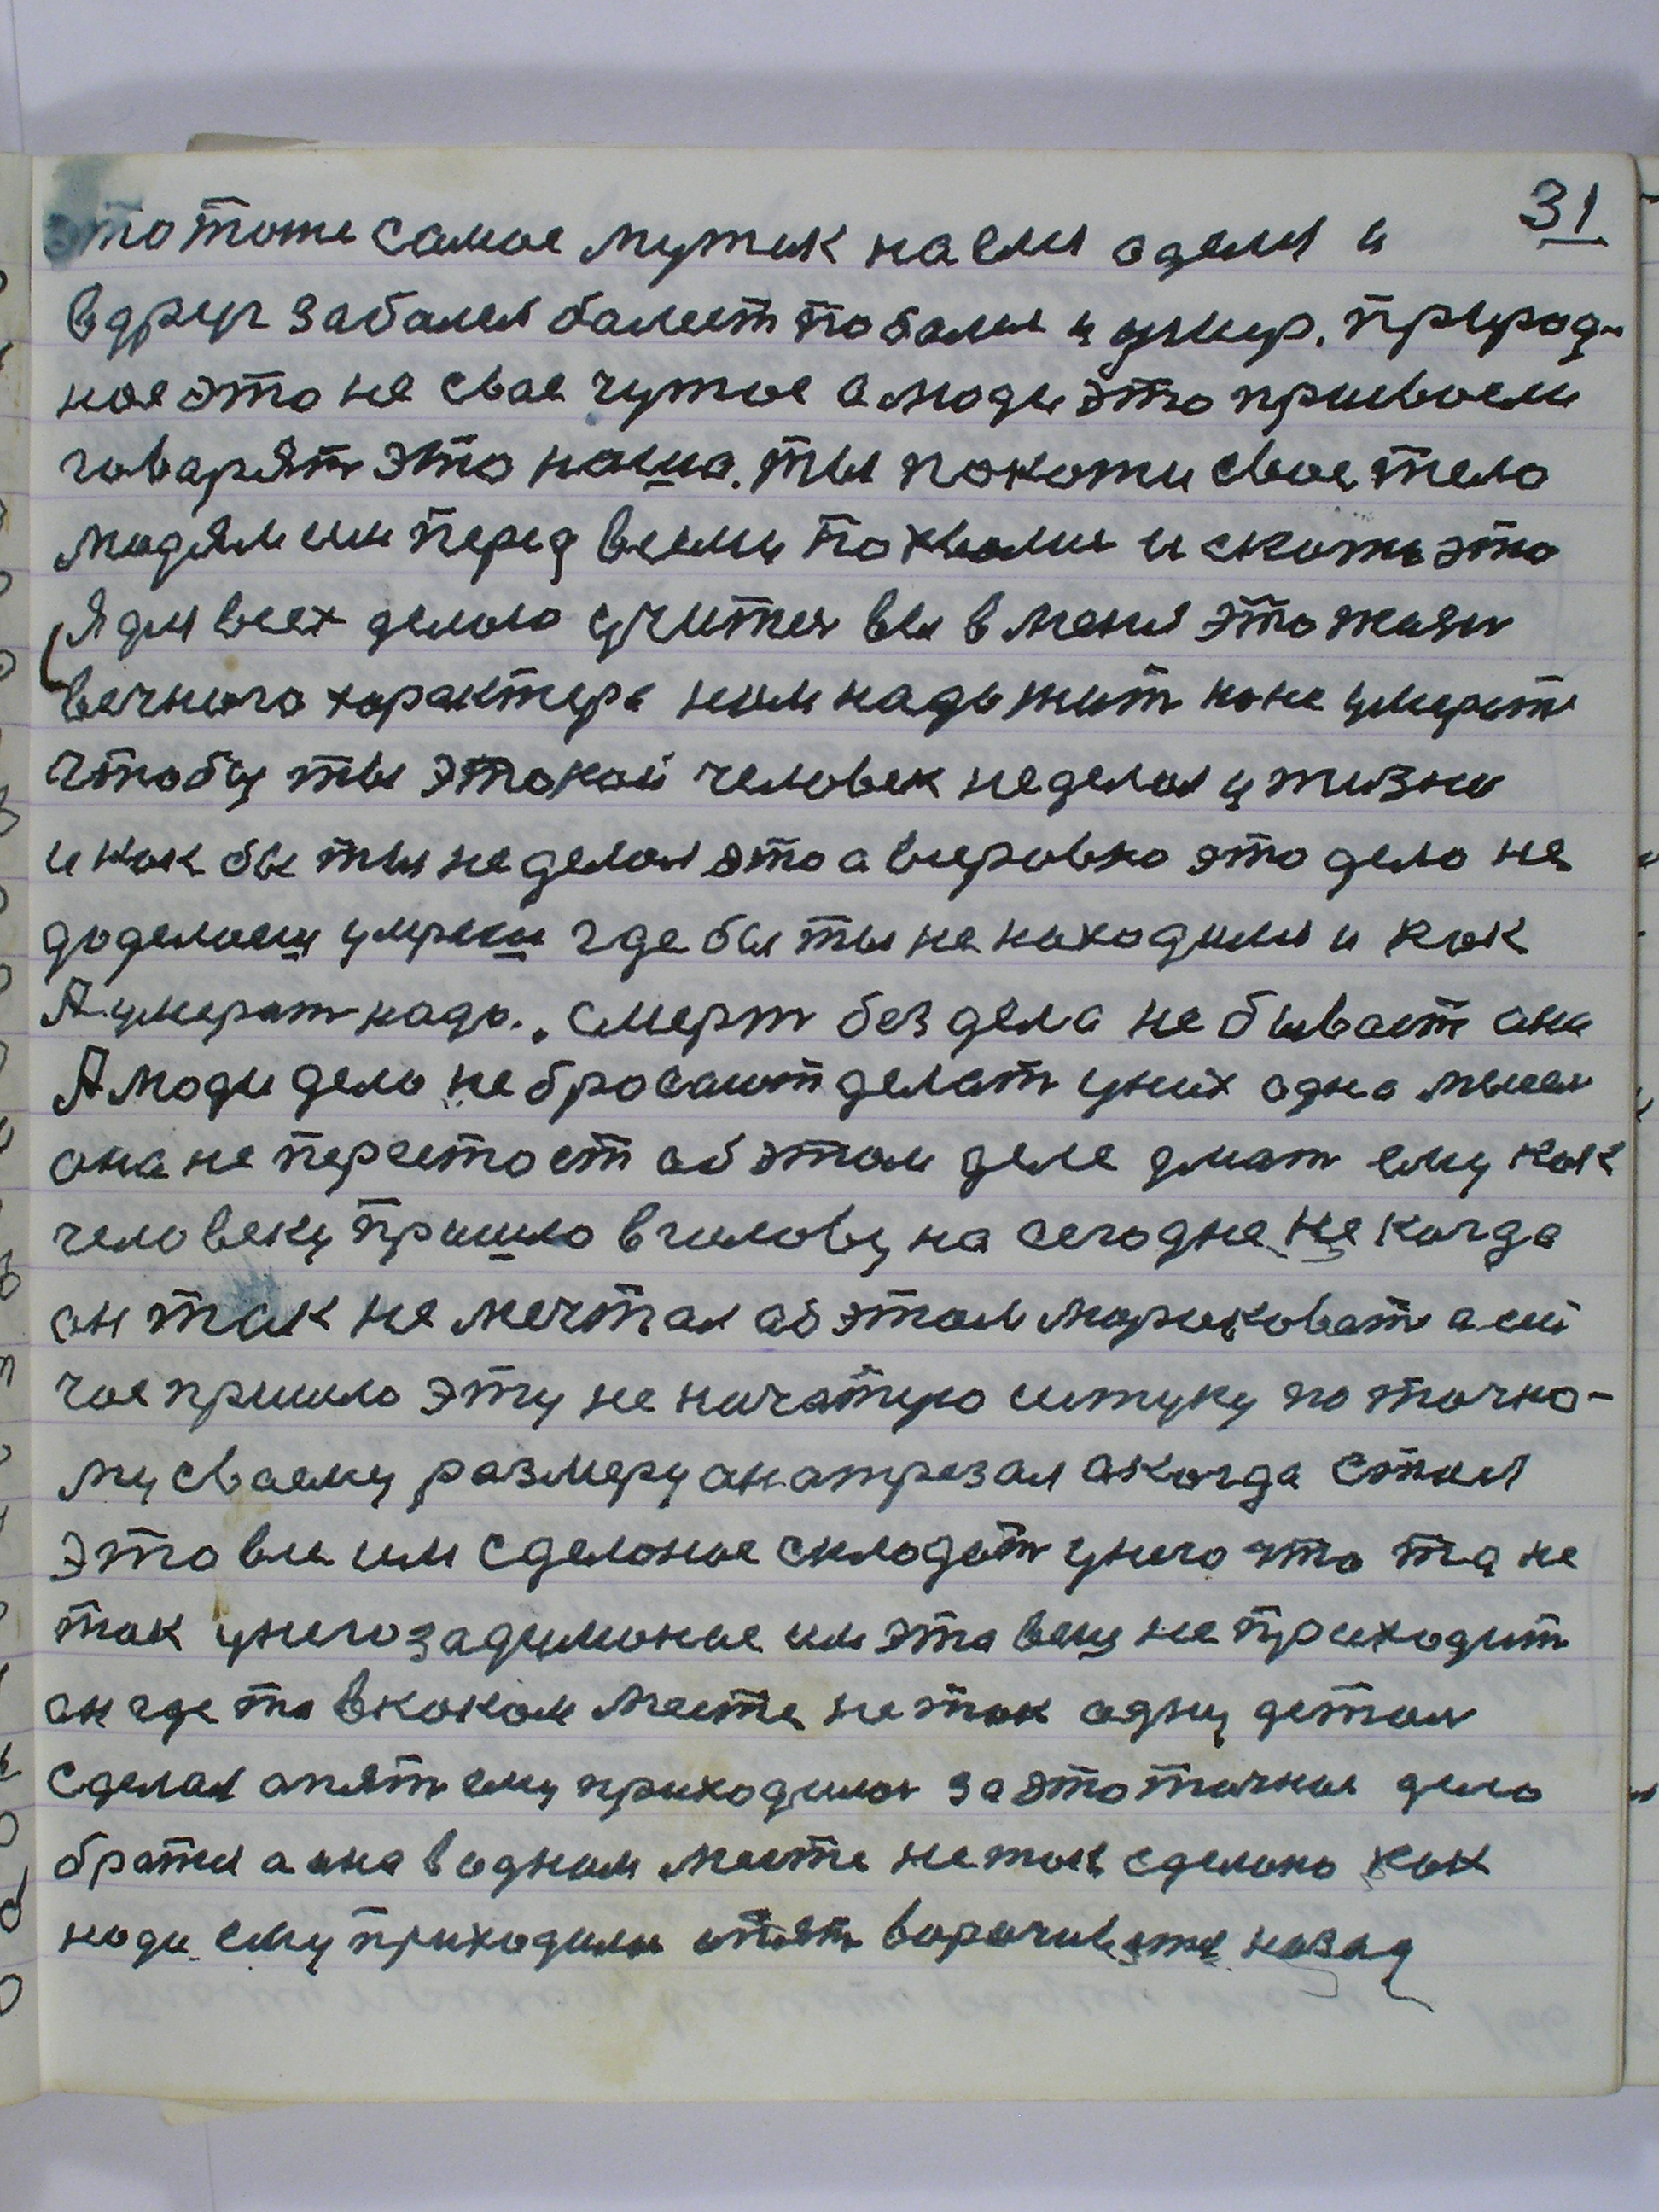 31
это тоже самое мужик наелся оделся и
вдруг заболел болеет поболел и умер. природ-
ное это не свае чужое а люди это присвоели
говарят это наша. ты покажи свое тело
людям им перед всеми похвались и скажи это
Я для всех делаю учитися вы в меня это жизн
вечного характера нам надо жит но не умерат
чтобы ты этокой человек не делал у жизни
и как бы ты не делал это а всеровно это дело не
доделаеш умреш где бы ты не находился и как
А умерат надо. смерт без дела не бывает она
А люди дело не бросают делат у них одна мысля
она не перестоет об этом деле думат ему как
человеку пришло в голову на сегодня не когда
он так не мечтал об этом мороковат а сей
час пришло эту не начатую штуку по точно-
му сваему размеру он атрезал а когда стал
это все им сделоное складат у него что та не
так у него задуманое им эта вещ не приходит
он где то в каком месте не так одну детал
сделал апят ему приходилос за это точное дело
братся а она в одном месте не так сделано как
нади ему приходилос апят ворочиватся назад